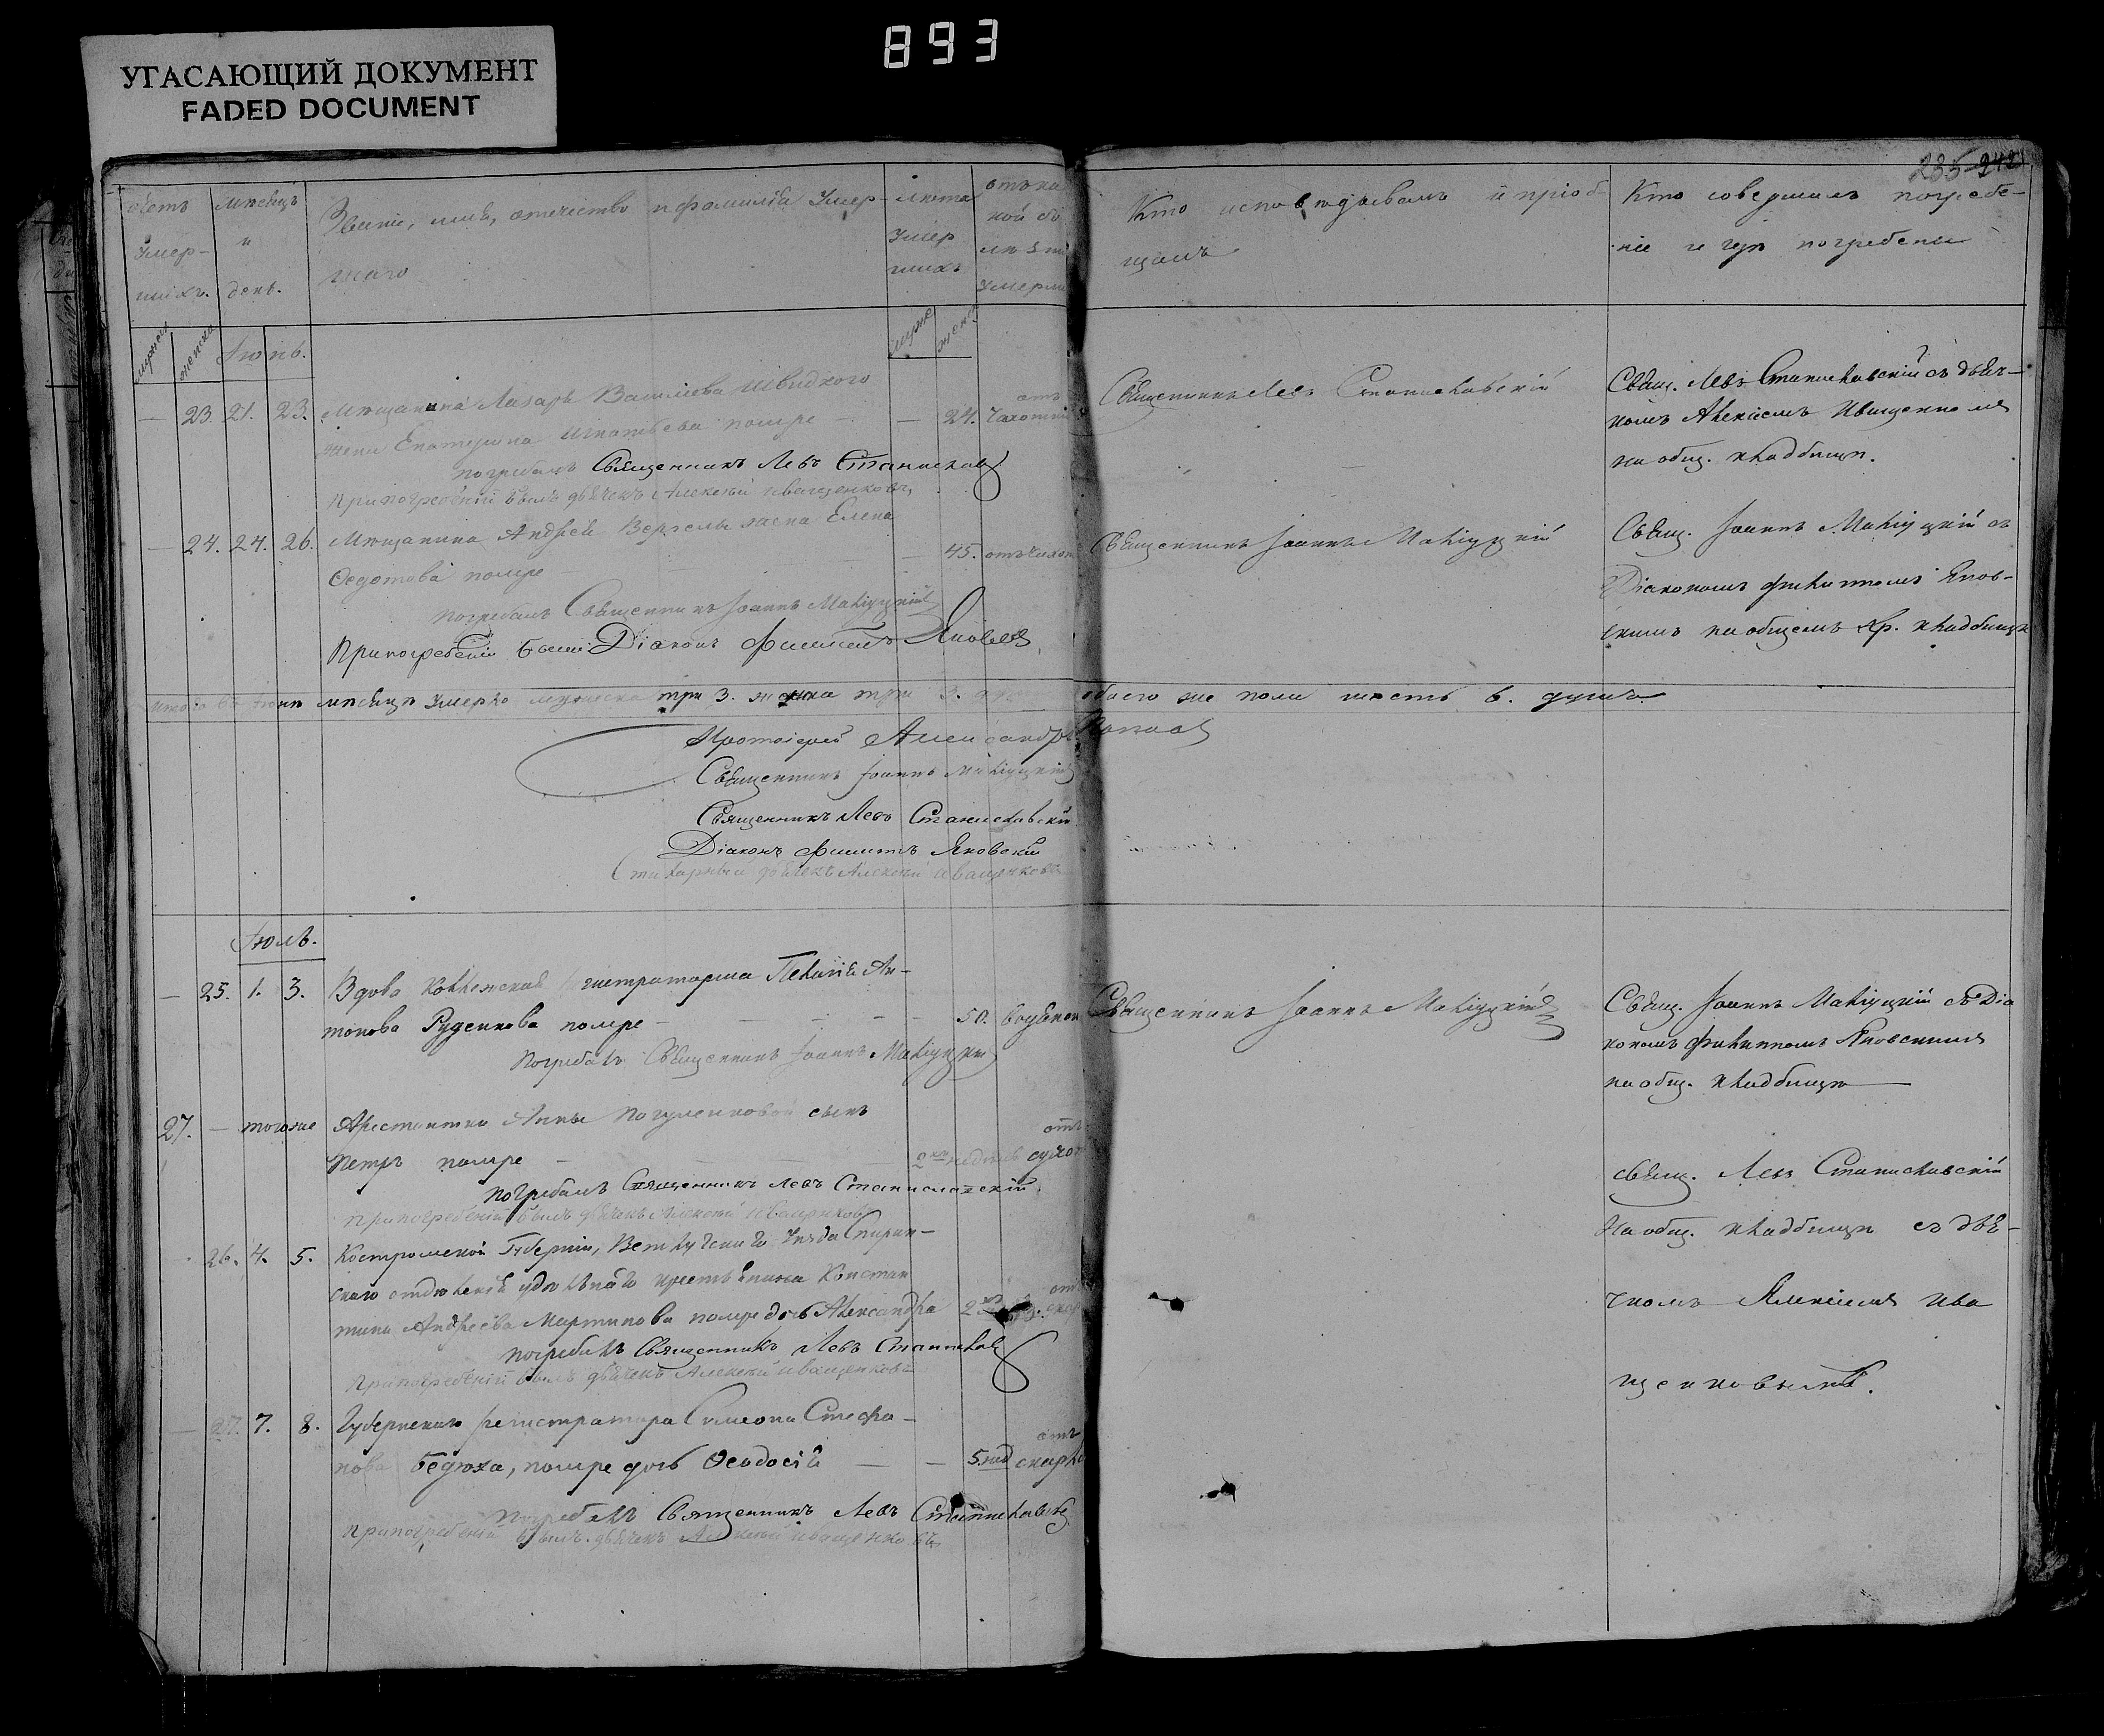 893
УГАСАЮЩИЙ ДОКУМЕНТ
FADED DOCUMENT
235 242
счетъ умер-шихъ.
мѣсяцъ и день.
Званіе, имя, отечество и фамилія умер-
шаго
лѣта умер шихъ
отъ ка кой бо лѣзни умерли
Кто исповѣдывалъ и пріоб-
щалъ
Кто совершалъ погребе-
ніе и гдѣ погребены
Іюнь.
23. 21. 23. Мѣщанина Лазаря Васильева Швидкого
жена Екатерина Игнатьева помре — 24. отъ чахотки
погребалъ Священникъ Левъ Станиславс
Припогребеніи былъ дьячекъ Алексѣй Иващенковъ
Священникъ Левъ Станиславскій
Свящ. Левъ Станиславскій съ дьяч-
комъ Алексіемъ Иващенко
на общ. кладбищѣ.
24. 24. 26. Мѣщанина Андрея жена Елена
Ѳедотова помре — 45. отъ чахот
погребалъ Священникъ Іоаннъ
Припогребеніи былъ Діаконъ Филиппъ Яновск
Священникъ Іоаннъ
Свящ. Іоаннъ съ
Діакономъ Филиппомъ Янов-
скимъ на общемъ кладбищѣ
Итого въ Іюнѣ мѣсяцѣ умерло мужеска три 3. женска три 3. а обоего же пола шесть 6. душъ
Протоіерей Александръ Поповъ
Священникъ Іоаннъ
Священникъ Левъ Станиславскій
Діаконъ Филиппъ Яновскій
Стихарный дьячекъ Алексѣй Иващенковъ
Іюль.
25. 1. 3. Вдова Коллежская регистраторша Пелагія Ан-
тонова Руденкова помре — 50.
Погребалъ Священникъ Іоаннъ
Священникъ Іоаннъ
Свящ. Іоаннъ съ Діа
кономъ Филиппомъ Яновскимъ
на общ. кладбищѣ
27. — тогоже Арестантки Анны сынъ
Петръ помре — 2 недѣль отъ сухот
погребалъ Священникъ Левъ Станиславскій
Припогребеніи былъ дьячекъ Алексѣй Иващенковъ
Свящ. Левъ Станиславскій
На общ. кладбищѣ съ дья-
чкомъ Алексіемъ Ива
щенковымъ.
26. 4. 5. Костромской Губерніи, Ветлужскаго Уѣзда
скаго отдѣленія удѣльнаго крестьянина Констан
тина Андреева Мартинова помре дочь Александра 2
погребалъ Священникъ Левъ Станиславс
Припогребеніи былъ дьячекъ Алексѣй Иващенковъ
27. 7. 8. Губернскаго регистратора Симеона Стефа-
нова Бедюха, помре дочь Ѳеодосія — 5. нед отъ скарла
погребалъ Священникъ Левъ Станиславскій
Припогребеніи былъ дьячекъ Алексѣй Иващенковъ